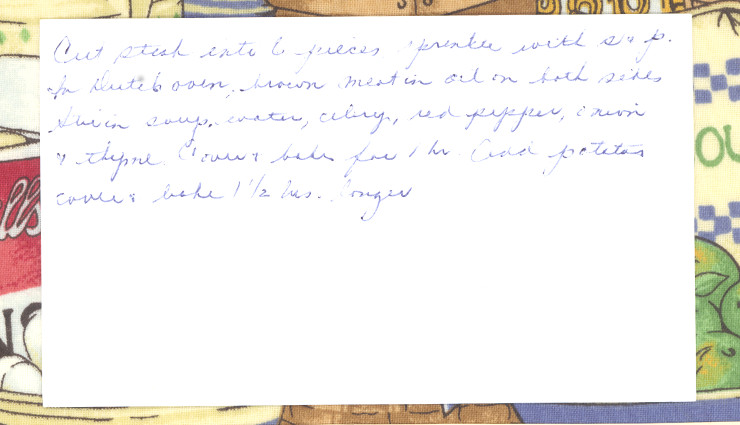 Cut steak into 6 pieces sprinkle with s & p.
In Dutch oven, brown meat in oil on both sides
Stir in soup, water, celery, red pepper, onion
& thyme. Cover & bake for 1 hr. Add potatoes
cover & bake 1 1/2 hrs. longer